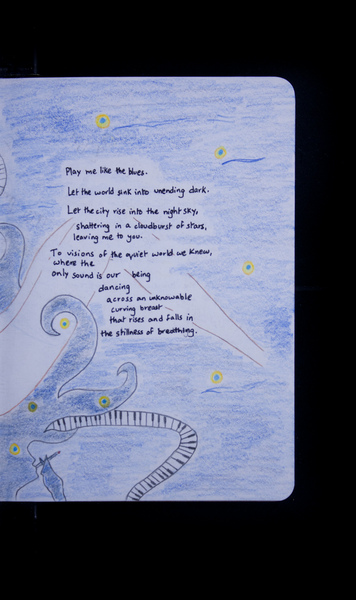 Play me like the blues.
Let the world sink into unending dark.
Let the city rise into the night sky,
shattering in a cloudburst of stars,
leaving me to you.
To visions of the quiet world we knew,
where the
only sound is our being
dancing
across an unknowable
curving breast
that rises and falls in
the stillness of breathing.